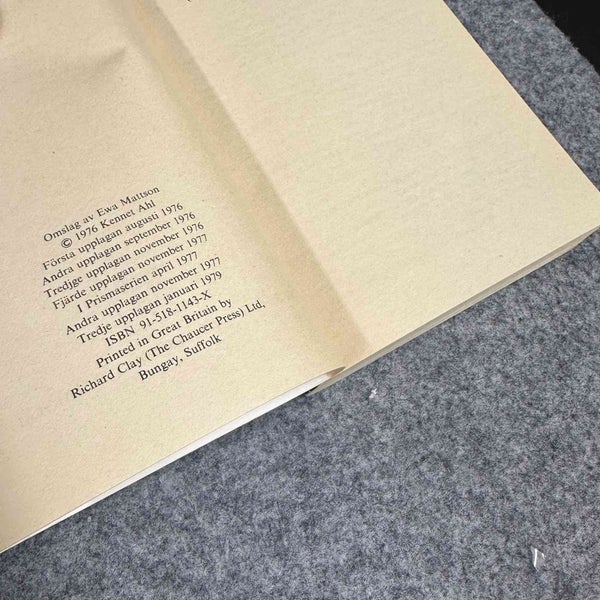 Omslag av Ewa Mattson
© 1976 Kennet Ahl
Första upplagan augusti 1976
Andra upplagan september 1976
Tredjge upplagan november 1976
Fjärde upplagan november 1977
I Prismaserien april 1977
Andra upplagan november 1977
Tredje upplagan januari 1979
ISBN 91-518-1143-X
Printed in Great Britain by
Richard Clay (The Chaucer Press) Ltd,
Bungay, Suffolk